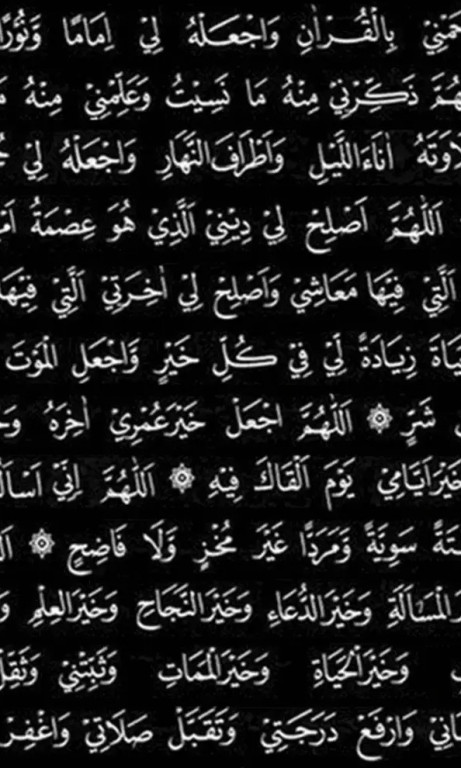 بِالْقُرْاٰنِ وَاجْعَلْهُ لِيْ اِمَامًا
ذَكِّرْنِيْ مِنْهُ مَا نَسِيْتُ وَعَلِّمْنِيْ مِنْهُ
اٰنَاءَ اللَّيْلِ وَاَطْرَافَ النَّهَارِ وَاجْعَلْهُ لِيْ
اَللّٰهُمَّ اَصْلِحْ لِيْ دِيْنِيْ الَّذِيْ هُوَ عِصْمَةُ
الَّتِيْ فِيْهَا مَعَاشِيْ وَاَصْلِحْ لِيْ اٰخِرَتِيْ الَّتِيْ فِيْهَا
زِيَادَةً لِّيْ فِيْ كُلِّ خَيْرٍ وَّاجْعَلِ الْمَوْتَ
شَرٍّ ۞ اَللّٰهُمَّ اجْعَلْ خَيْرَ عُمْرِيْ اٰخِرَهُ
خَيْرَ اَيَّامِيْ يَوْمَ اَلْقَاكَ فِيْهِ ۞ اَللّٰهُمَّ اِنِّيْ
سَوِيَّةً وَّمَرَدًّا غَيْرَ مُخْزٍ وَّلَا فَاضِحٍ ۞
الْمَسْاَلَةِ وَخَيْرَ الدُّعَاءِ وَخَيْرَ النَّجَاحِ وَخَيْرَ الْعِلْمِ
وَخَيْرَ الْحَيَاةِ وَخَيْرَ الْمَمَاتِ وَثَبِّتْنِيْ
وَارْفَعْ دَرَجَتِيْ وَتَقَبَّلْ صَلَاتِيْ وَاغْفِرْ